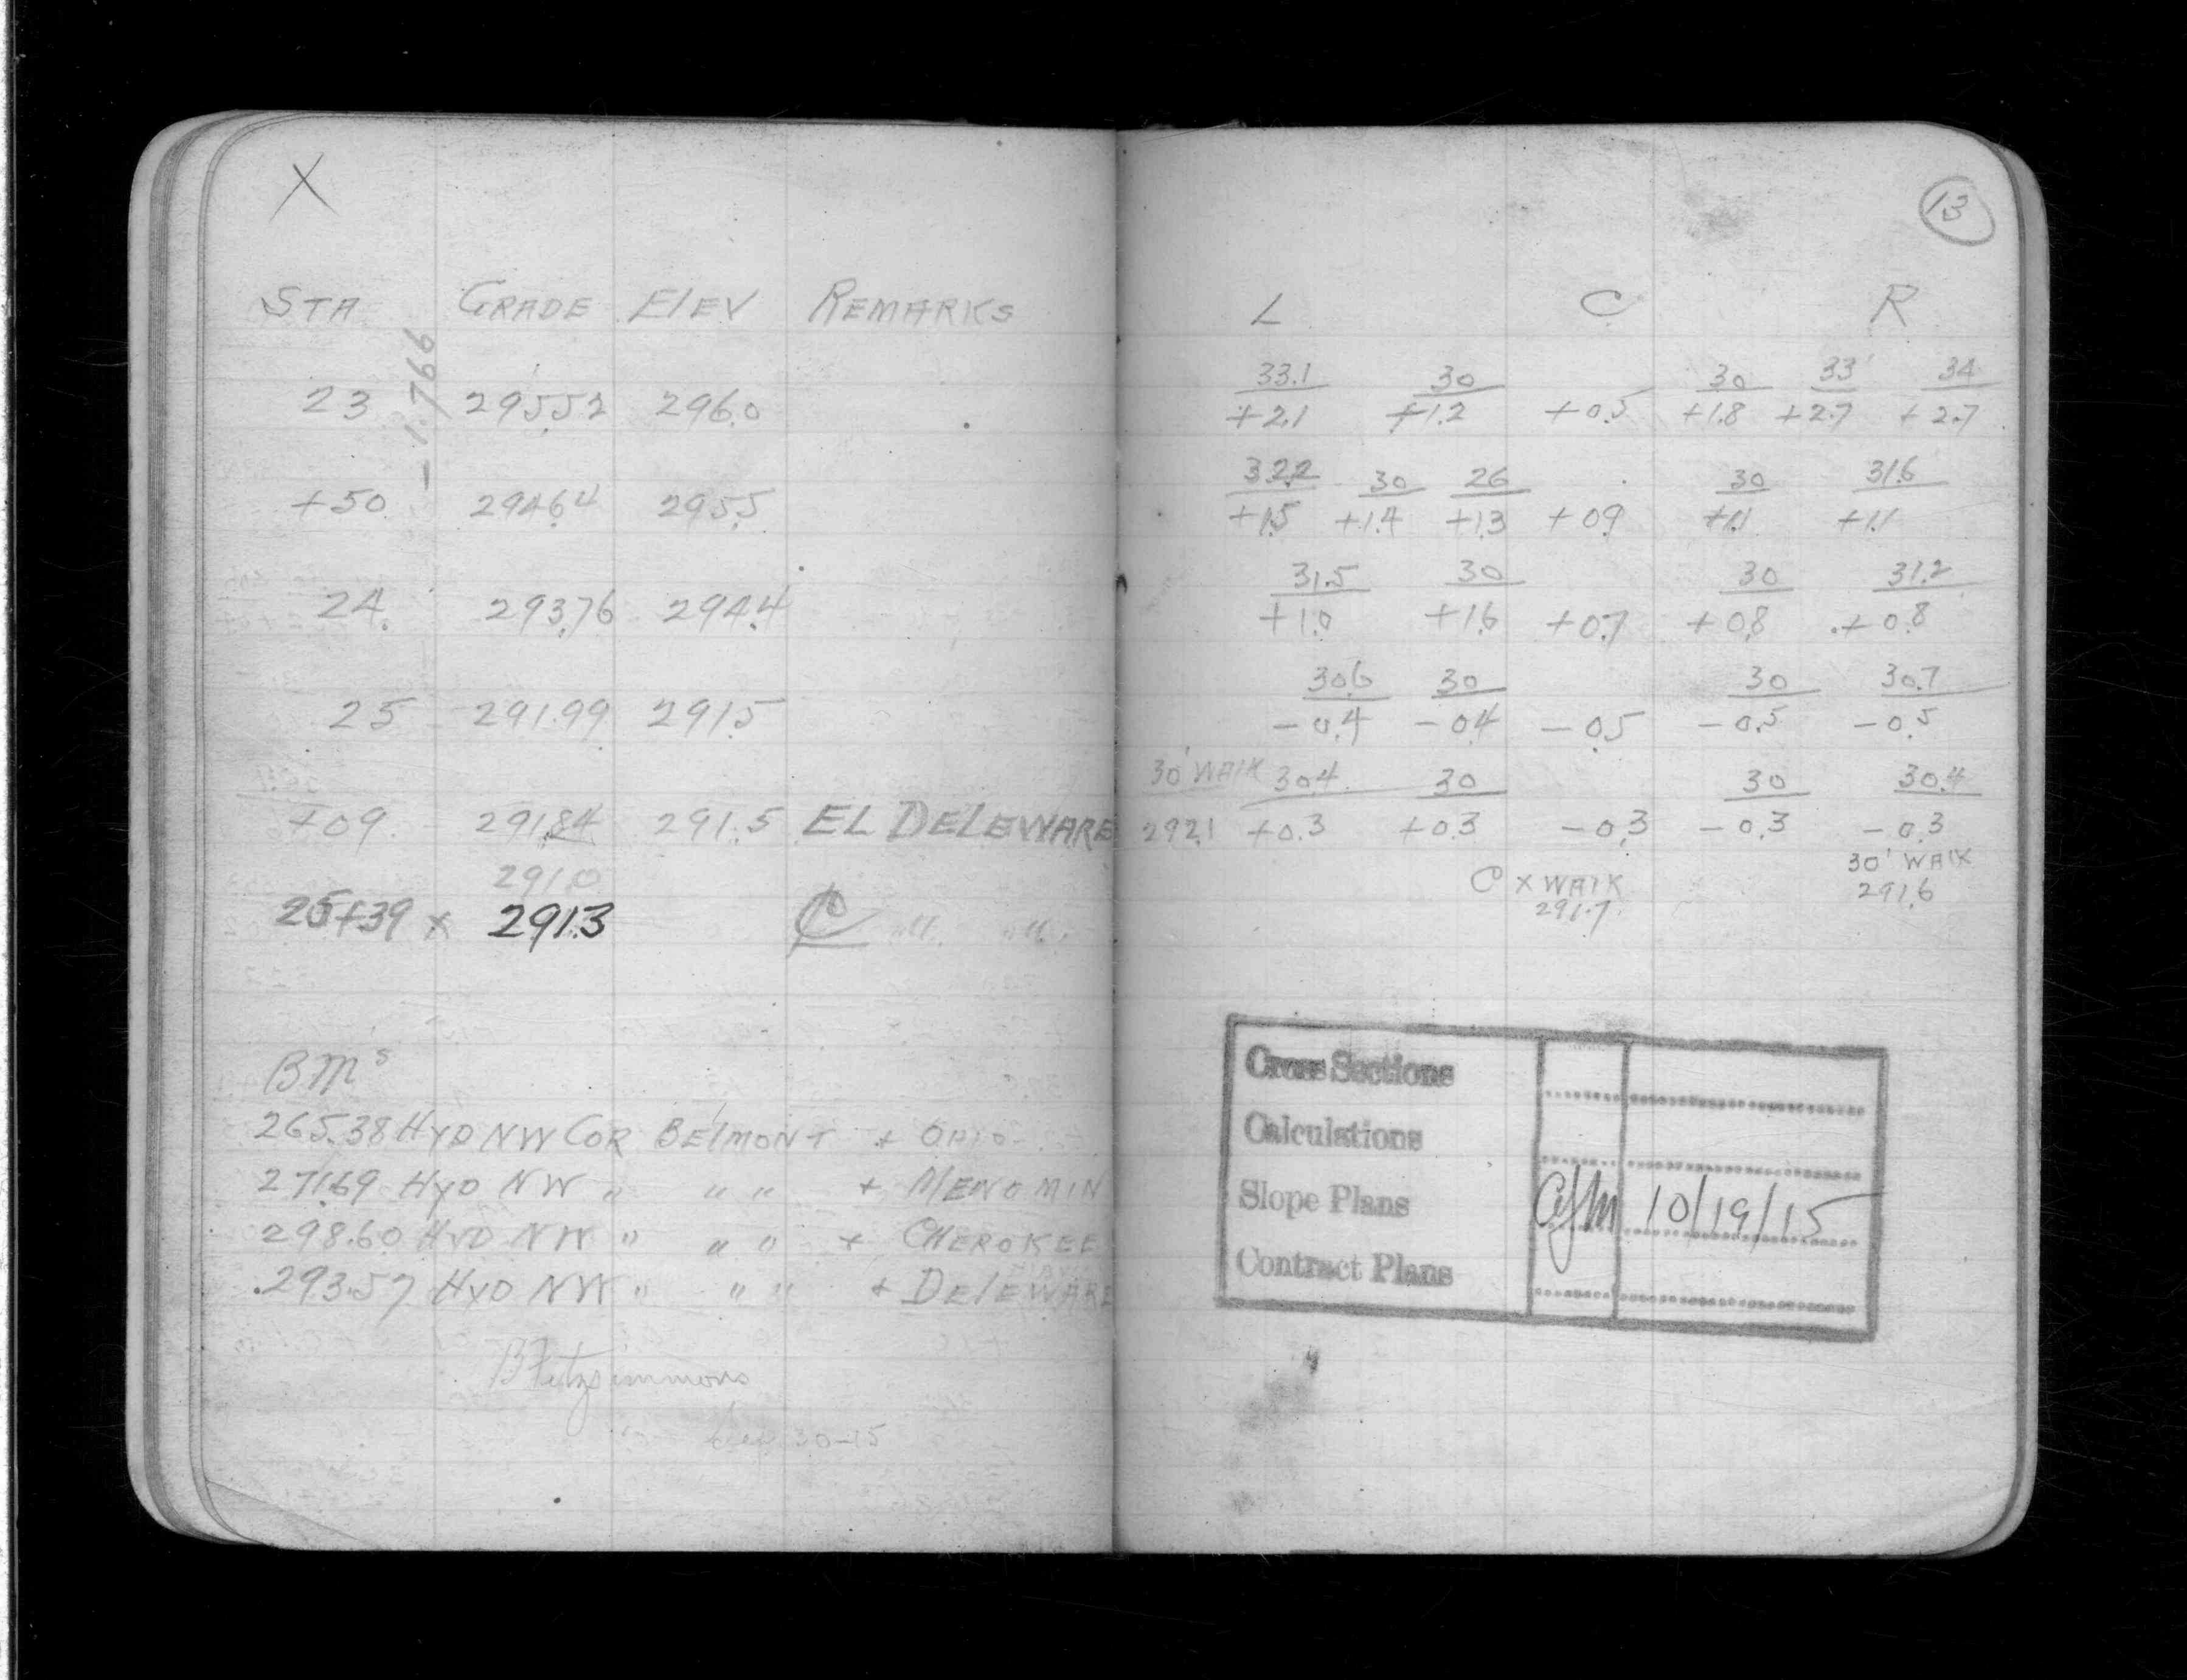 X
STA GRADE ELEV REMARKS
-1.766
23 295.52 296.0
+50 294.64 295.5
24. 293.76 294.4
25 291.99 291.5
+09 291.84 291.5 EL DELEWARE
291.0
25+39 x 291.3 ℄ " "
BMs
265.38 HYD NW COR BELMONT + OHIO
271.69 HYD NW " " " + MENOMIN
298.60 HYD NW " " " + CHEROKEE
293.57 HYD NW " " " + DELEWARE
B Fitzsimmons
30-15
13
L C R
33.1 30 30 33' 34
+2.1 +1.2 +0.5 +1.8 +2.7 +2.7
32.2 30 26 30 31.6
+1.5 +1.4 +1.3 +0.9 +1.1 +1.1
31.5 30 30 31.2
+1.0 +1.6 +0.7 +0.8 +0.8
30.6 30 30 30.7
-0.4 -0.4 -0.5 -0.5 -0.5
30' WALK 30.4 30 30 30.4
292.1 +0.3 +0.3 -0.3 -0.3 -0.3
C X WALK 30' WALK
291.7 291.6
Cross Sections
Calculations
Slope Plans 10/19/15
Contract Plans